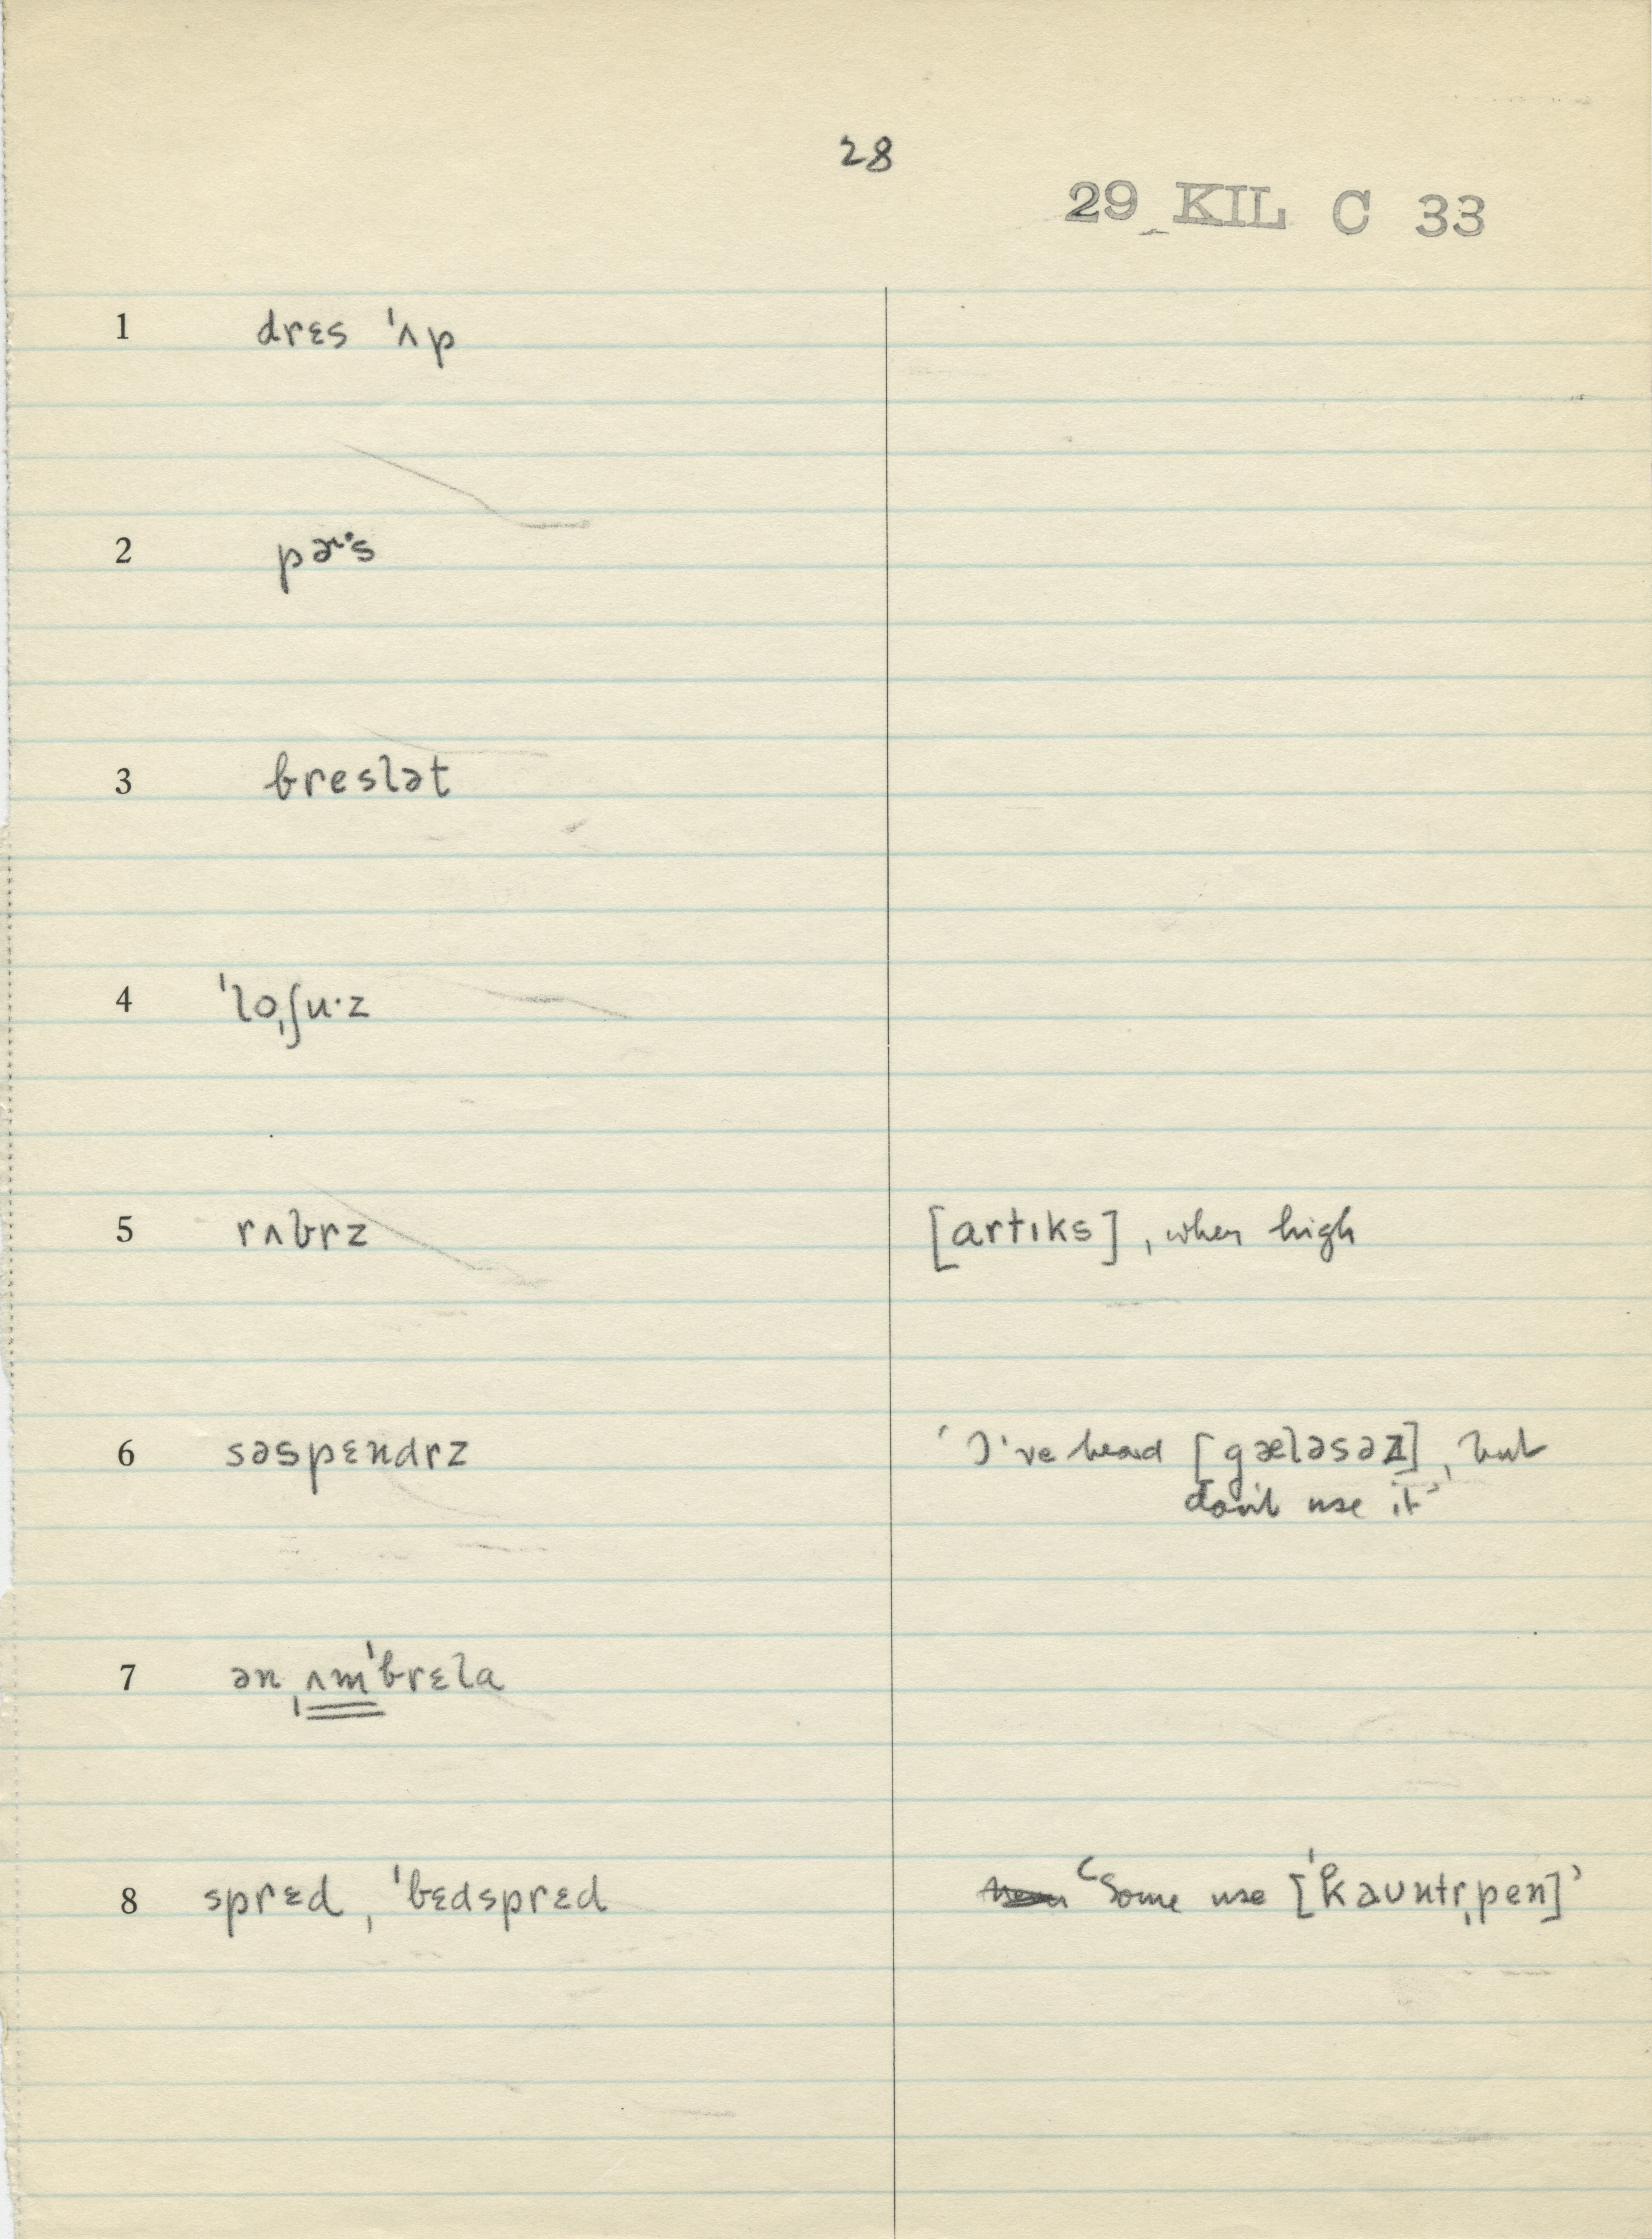 28
29 KIL C 33
1 drɛs ˈʌp
2 pɚˑs
3 breslət
4 ˈloˌʃuˑz
5 rʌbrz [artɪks], when high
6 səspɛndrz 'I've heard [gæləsəz], but
don't use it'
7 ən ˌʌmˈbrɛla
8 sprɛd, ˈbɛdsprɛd 'Some use [ˈkaʊntrˌpen]'